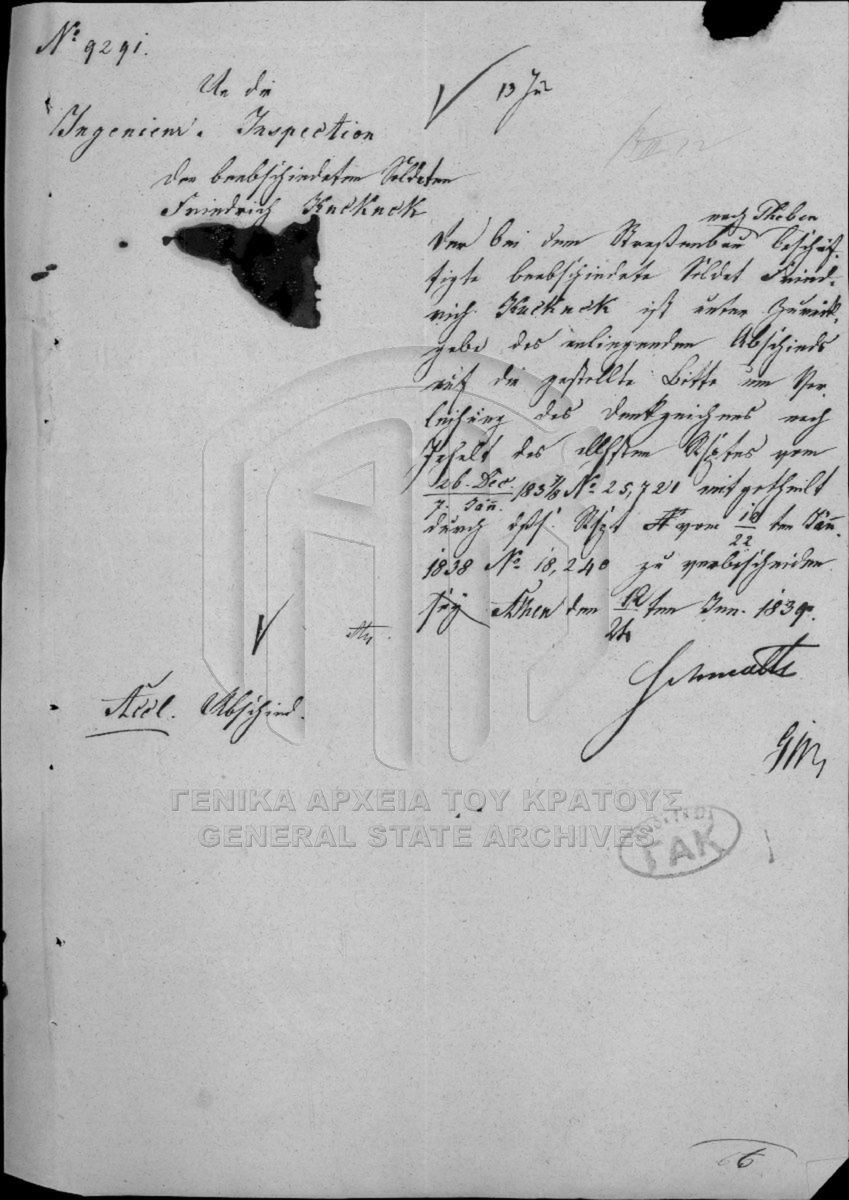 No 9291.
An die
Ingenieur. Inspection
den beabschiedeten Soldaten
Friedrich Kuckuck
13 Jä
nach Theben
Der bei dem Straßenbau beschäf-
tigte beabschiedete Soldat Fried-
rich Kuckuck ist unter Zurück-
gabe des anliegenden Abschieds
auf die gestellte Bitte um Ver-
leihung des Denkzeichens nach
Inhalt des allhften Rsptes vom
26. Dec. / 7. Jän. 1837/8 No 25,721 mitgetheilt
durch Rspt vom 10/22 ten Jän.
1838 No 18,240 zu verbescheiden.
Athen den 12/24 ten Jan. 1839.
Schmaltz
Accl. Abschied.
ΓΕΝΙΚΑ ΑΡΧΕΙΑ ΤΟΥ ΚΡΑΤΟΥΣ
GENERAL STATE ARCHIVES
ΓΑΚ
6